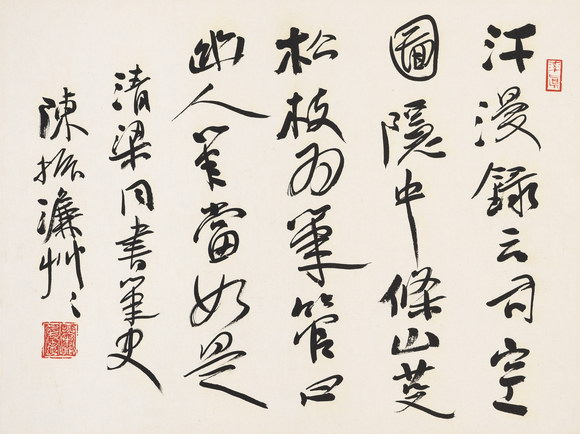 汗漫錄云司空
圖隱中條山芟
松枝为筆管曰
幽人筆當如是
清梁同書筆史
陳振濂艸〻